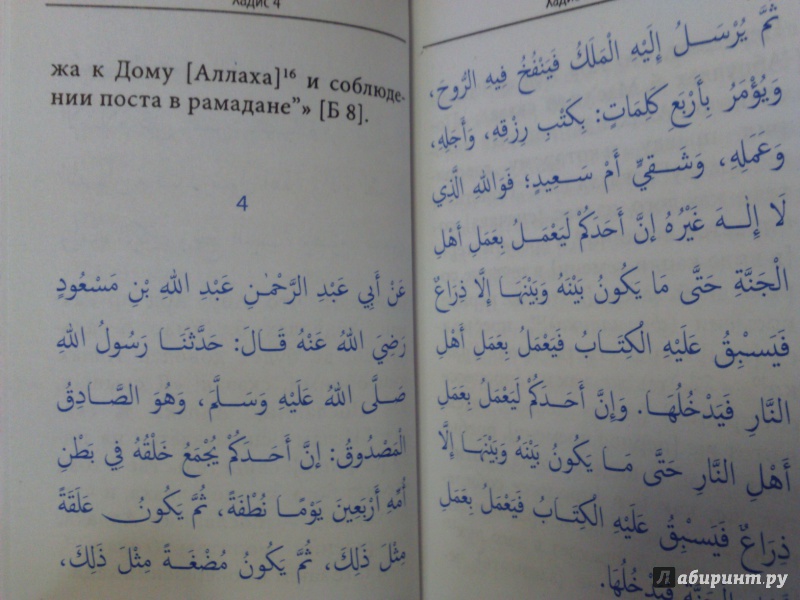 Хадис 4
жа к Дому [Аллаха]¹⁶ и соблюде-
нии поста в рамадане”» [Б 8].
4
عَنْ أَبِي عَبْدِ الرَّحْمٰنِ عَبْدِ اللهِ بْنِ مَسْعُودٍ
رَضِيَ اللهُ عَنْهُ قَالَ: حَدَّثَنَا رَسُولُ اللهِ
صَلَّى اللهُ عَلَيْهِ وَسَلَّمَ، وَهُوَ الصَّادِقُ
الْمَصْدُوقُ: إِنَّ أَحَدَكُمْ يُجْمَعُ خَلْقُهُ فِي بَطْنِ
أُمِّهِ أَرْبَعِينَ يَوْمًا نُطْفَةً، ثُمَّ يَكُونُ عَلَقَةً
مِثْلَ ذَلِكَ، ثُمَّ يَكُونُ مُضْغَةً مِثْلَ ذَلِكَ،
ثُمَّ يُرْسَلُ إِلَيْهِ الْمَلَكُ فَيَنْفُخُ فِيهِ الرُّوحَ،
وَيُؤْمَرُ بِأَرْبَعِ كَلِمَاتٍ: بِكَتْبِ رِزْقِهِ، وَأَجَلِهِ،
وَعَمَلِهِ، وَشَقِيٍّ أَمْ سَعِيدٍ؛ فَوَاللهِ الَّذِي
لَا إِلٰهَ غَيْرُهُ إِنَّ أَحَدَكُمْ لَيَعْمَلُ بِعَمَلِ أَهْلِ
الْجَنَّةِ حَتَّى مَا يَكُونُ بَيْنَهُ وَبَيْنَهَا إِلَّا ذِرَاعٌ
فَيَسْبِقُ عَلَيْهِ الْكِتَابُ فَيَعْمَلُ بِعَمَلِ أَهْلِ
النَّارِ فَيَدْخُلُهَا. وَإِنَّ أَحَدَكُمْ لَيَعْمَلُ بِعَمَلِ
أَهْلِ النَّارِ حَتَّى مَا يَكُونُ بَيْنَهُ وَبَيْنَهَا إِلَّا
ذِرَاعٌ فَيَسْبِقُ عَلَيْهِ الْكِتَابُ فَيَعْمَلُ بِعَمَلِ
فَيَدْخُلُهَا.
Лабиринт.ру